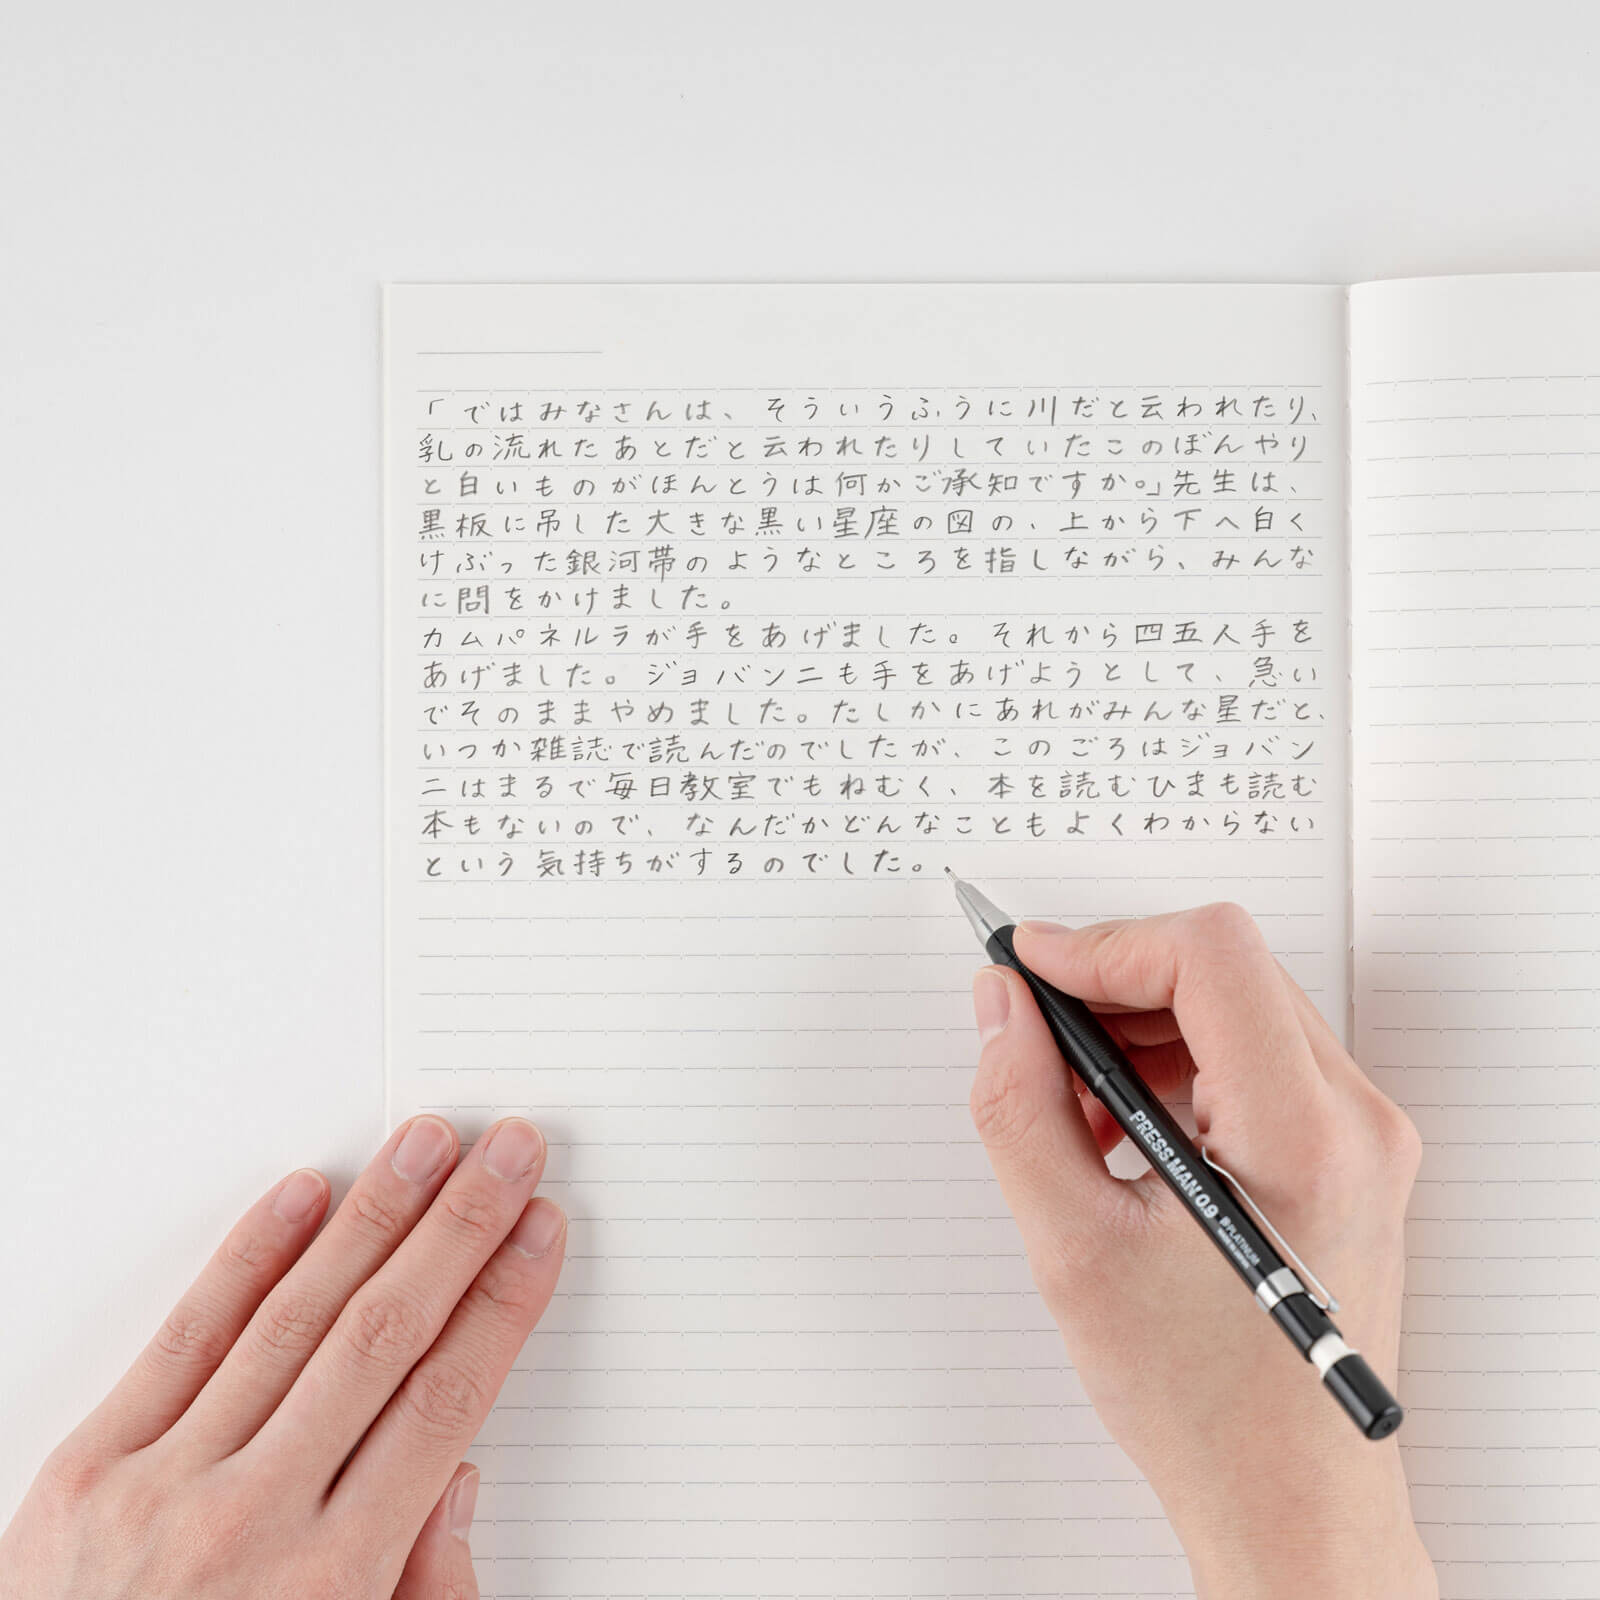 「ではみなさんは、そういうふうに川だと云われたり、
乳の流れたあとだと云われたりしていたこのぼんやり
と白いものがほんとうは何かご承知ですか。」先生は、
黒板に吊した大きな黒い星座の図の、上から下へ白く
けぶった銀河帯のようなところを指しながら、みんな
に問をかけました。
カムパネルラが手をあげました。それから四五人手を
あげました。ジョバンニも手をあげようとして、急い
でそのままやめました。たしかにあれがみんな星だと、
いつか雑誌で読んだのでしたが、このごろはジョバン
ニはまるで毎日教室でもねむく、本を読むひまも読む
本もないので、なんだかどんなこともよくわからない
という気持ちがするのでした。
PRESS MAN 0.9 PLATINUM